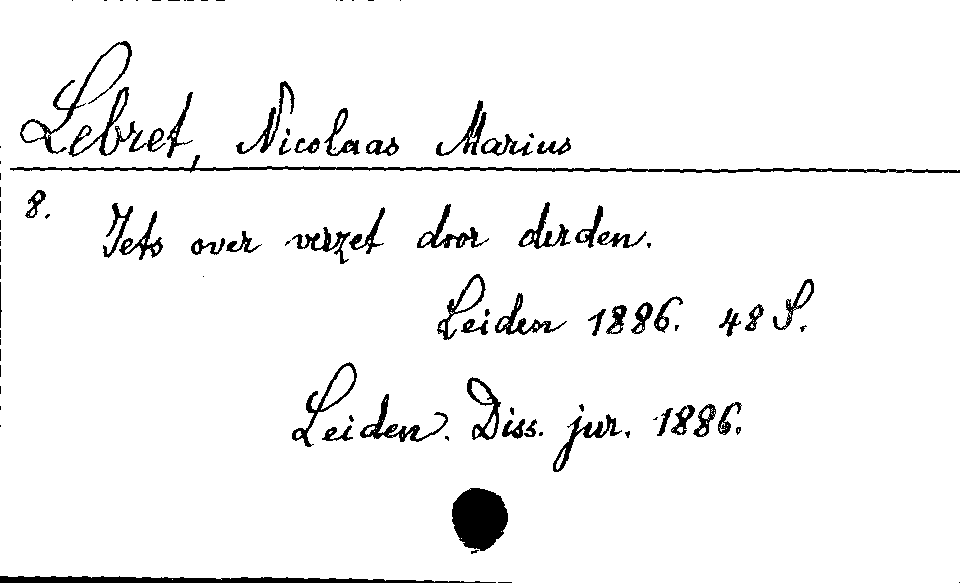 Lebret, Nicolaas Marius
8.
Iets over verzet door derden.
Leiden 1886. 48 S.
Leiden. Diss. jur. 1886.